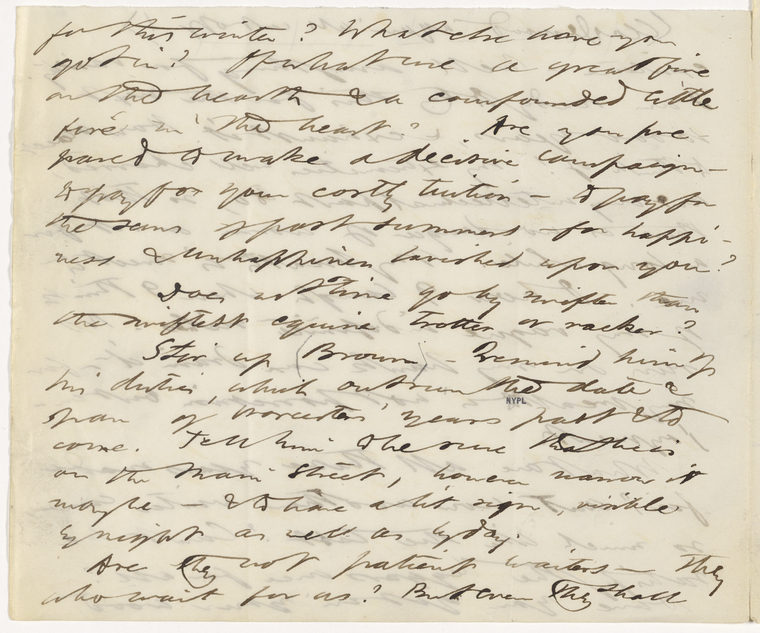 for this winter? What else have you
got in? Of what use a great fire
on the hearth & a confounded little
fire in the heart? Are you pre
pared to make a decisive campaign—
to pay for your costly tuition— to pay for
the suns of past summers— for happi-
ness & unhappiness lavished upon you?
Does not Time go by swifter than
the swiftest equine trotter or racker?
Stir up (Brown)— Remind him of
his duties, which outrun the date &
span of Worcester's years past & to
come. Tell him to be sure that he is
on the Main Street, however narrow it
may be— & to have a lit sign, visible
by night as well as by day.
Are they not patient waiters— they
who wait for us? But even they shall
NYPL